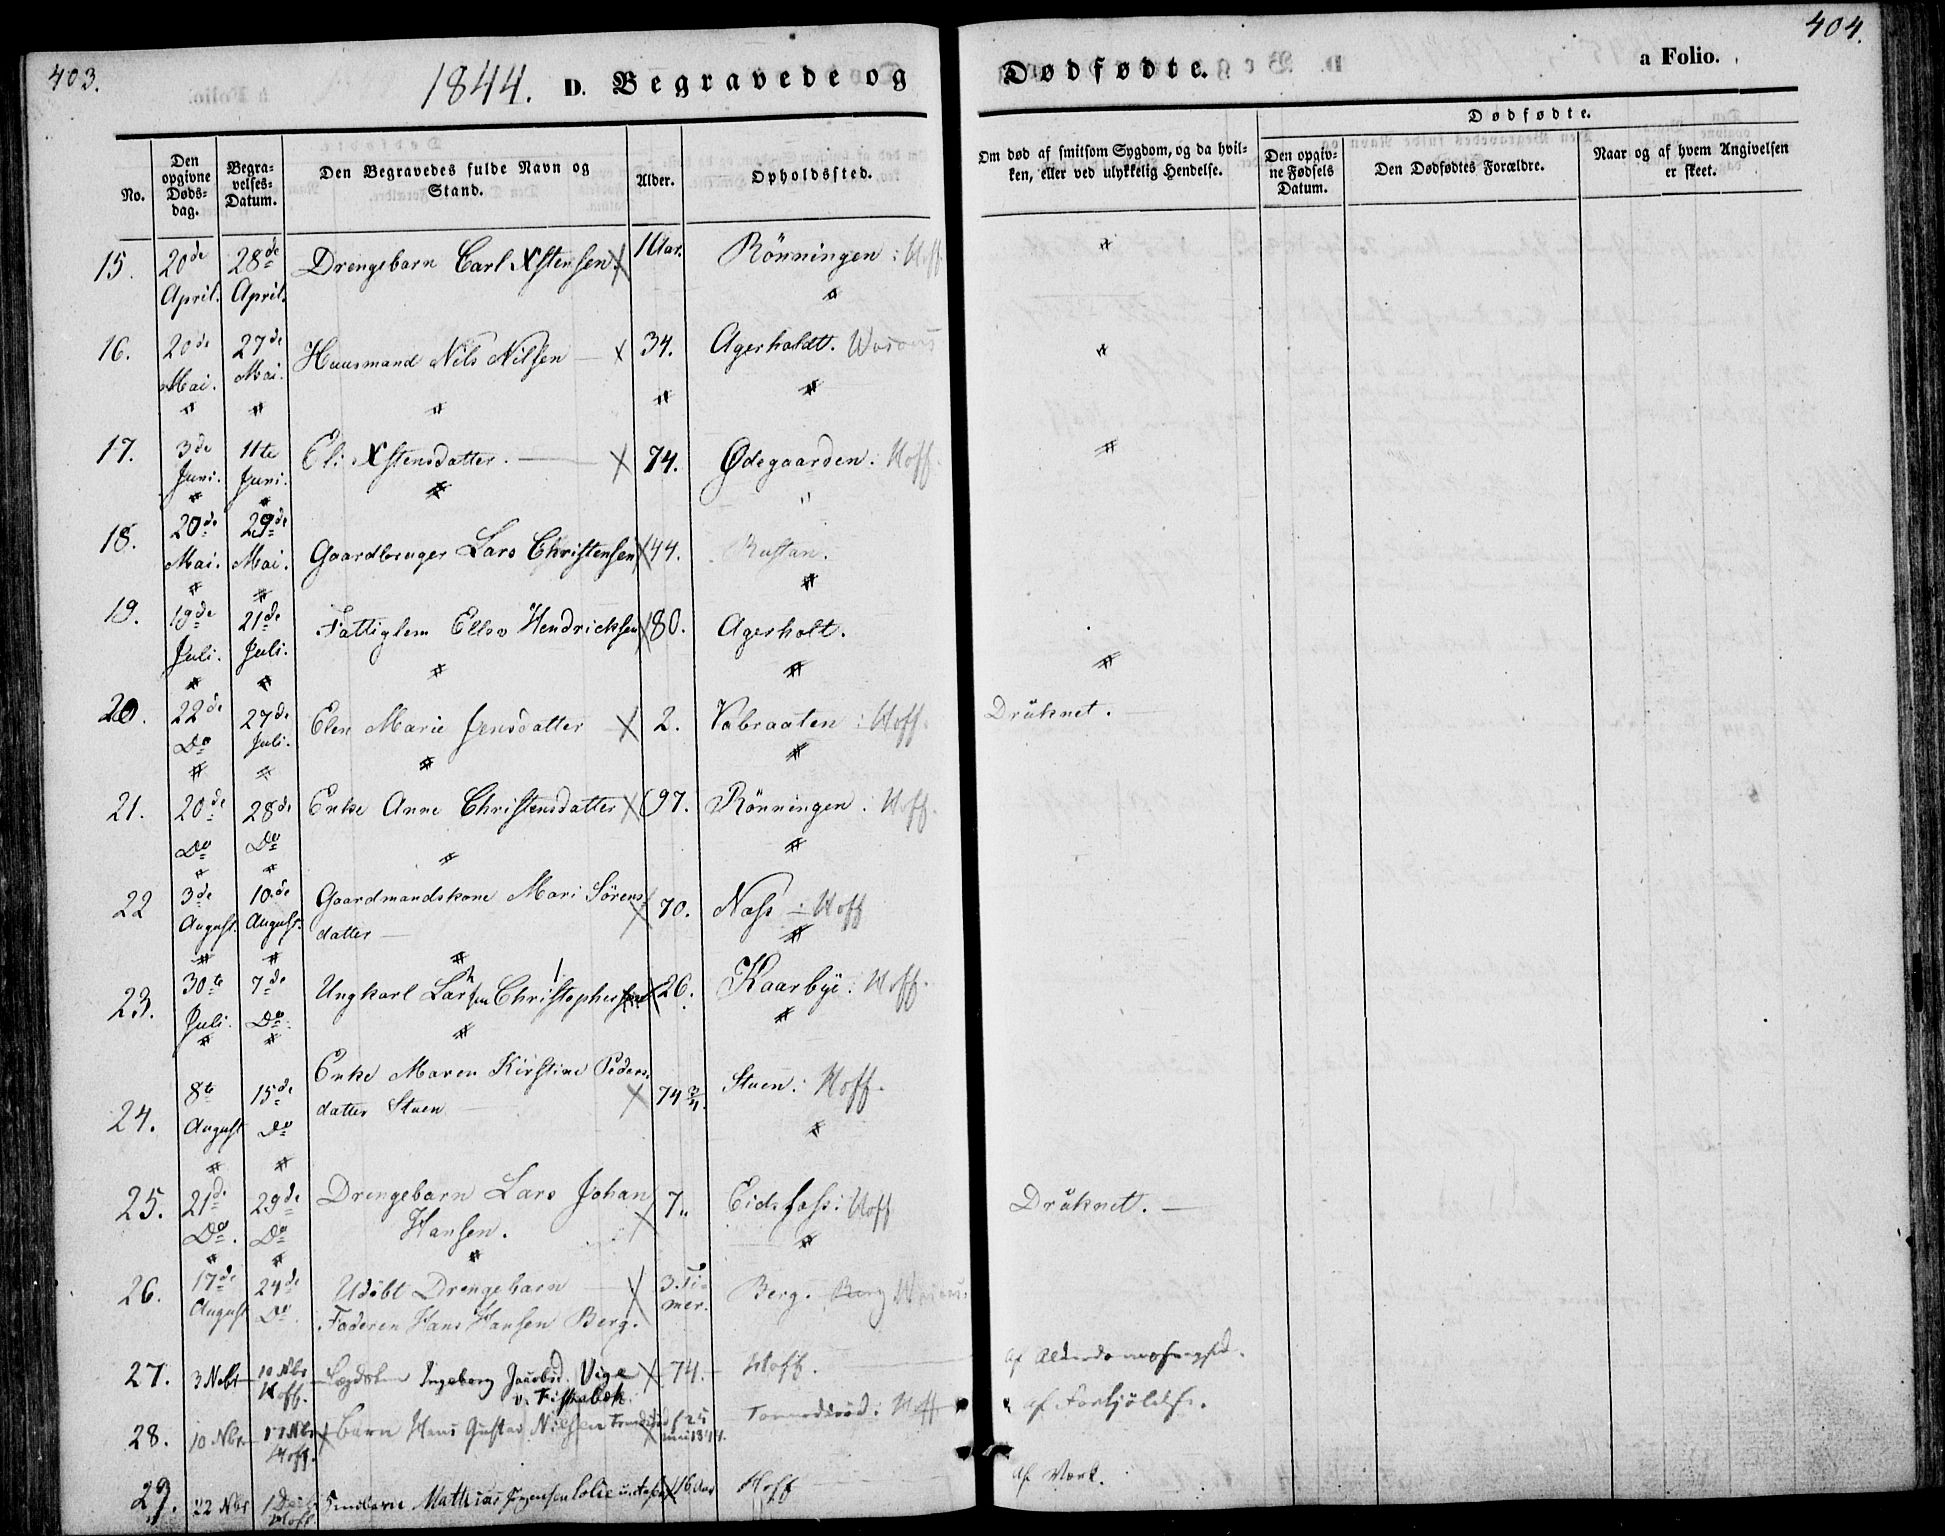 403.
404.
1844. D. Begravede og Dødfødte. a Folio.
No.
Den opgivne Døds-dag.
Begra-velses-Datum.
Den Begravedes fulde Navn og Stand.
Alder.
Opholdssted.
Om død af smitsom Sygdom, og da hvil-ken, eller ved ulykkelig Hendelse.
Dødfødte.
Den opgiv-ne Fødsels Datum.
Den Dødfødtes Forældre.
Naar og af hvem Angivelsen er skeet.
15. 20de April. 28de April. Drengebarn Carl Xstensen. 1 Aar. Rönningen : Hoff
16. 20de Mai. 27de Mai. Huusmand Nils Nilsen 34. Agerholdt.
17. 3de Juni. 11te Juni. Eli Xstensdatter. 74. Ødegaarden : Hoff.
18. 20de Mai. 29de Mai. Gaardbruger Lars Christensen 44. Rustan.
19. 19de Juli. 21de Juli. Fattiglem Hendricksen 80. Agerholt.
20. 22de Do 27de Juli. Elen Marie Jensdatter 2. Vabraaten : Hoff. Druknet.
21. 20de Do 28de Do Enke Anne Christensdatter 97. Rönningen : Hoff.
22 3de August. 10de August. Gaardmandskone Mari Sörens-
datter 70. Næss : Hoff
23. 30te Juli. 7de Do Ungkarl Larsen Christophersen 26. Kaarbye : Hoff.
24. 8te August 15de Do Enke Maren Kirstine Peders-
datter Stuen 74 3/4. Stuen : Hoff.
25. 21de Do. 29de Do Drengebarn Lars Johan
Hansen. 7. Eidsfoss : Hoff Druknet.
26. 17de August 24de Do. Udöbt Drengebarn
Faderen Hans Hansen Berg. 3 Ti-mer. Berg.
27. 3 Nobr 10 Nbr Hoff. Lægdslem Ingeborg Jacobsd. Vige
v. Fiskebek 74. Hoff. Af
28. 10 Nbr 17 Nbr Hoff. Barn Hans Gustav Nilsen Hoff af Forkjölelse.
29. 22 Nbr 1 Hoff. Mathias Jörgensen 16 Aar Hoff af Værk.